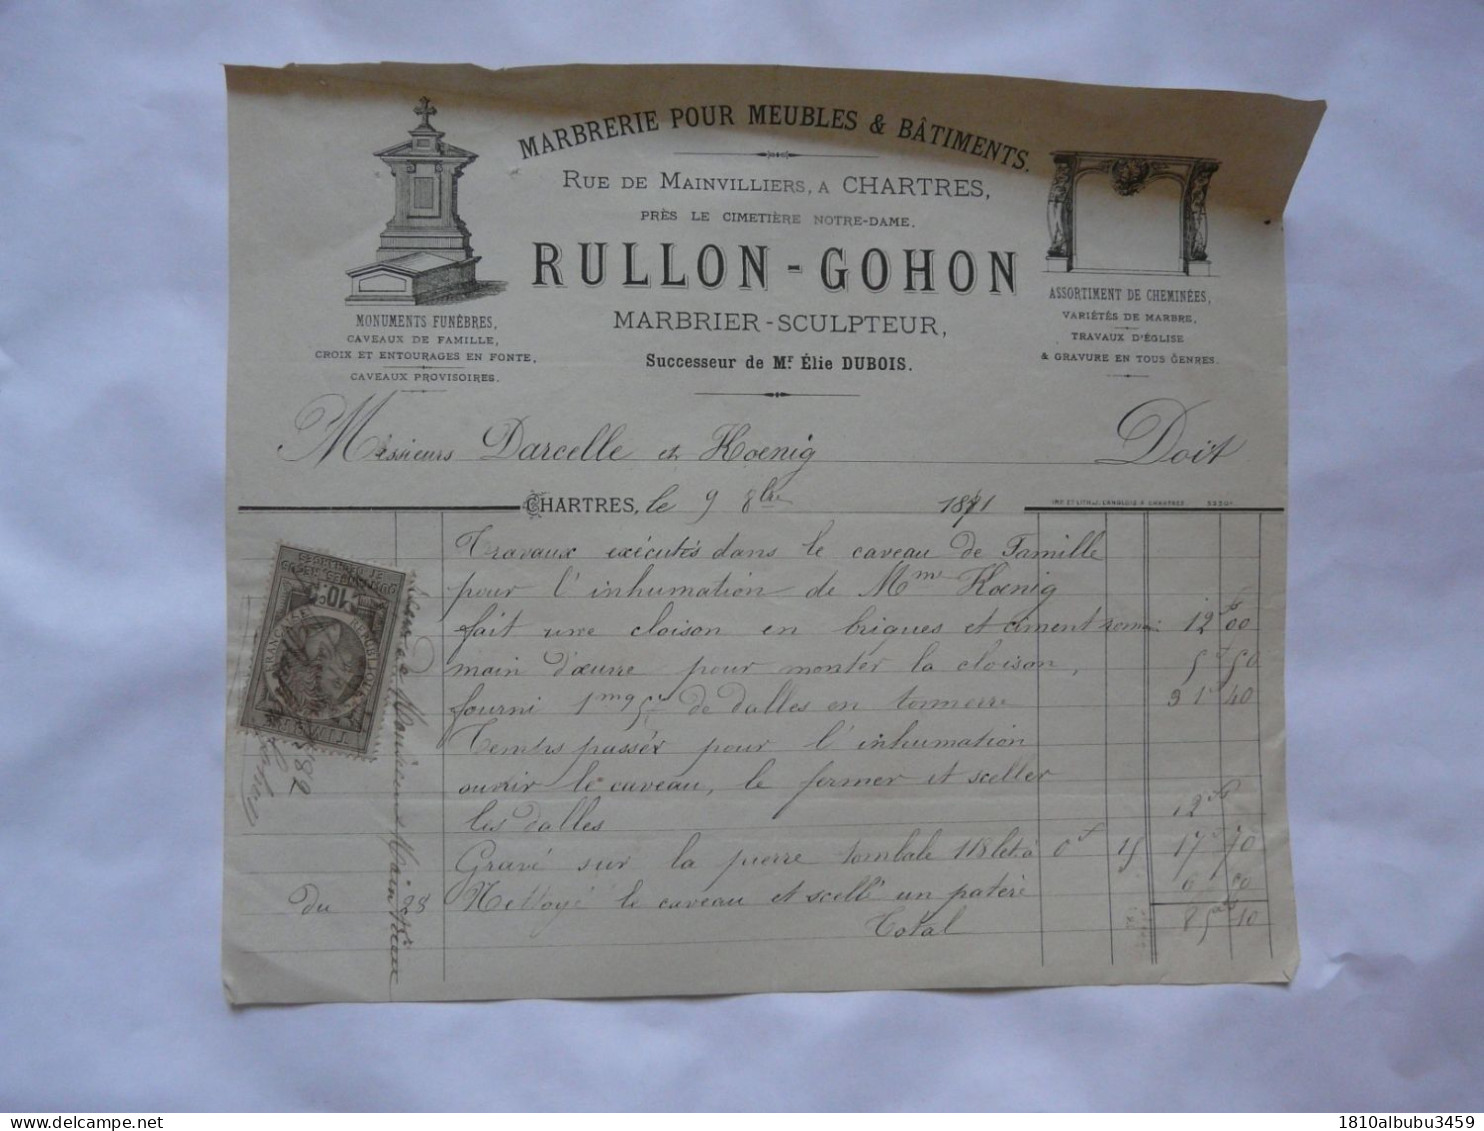 MARBRERIE POUR MEUBLES & BÂTIMENTS.
RUE DE MAINVILLIERS, A CHARTRES,
PRÈS LE CIMETIÈRE NOTRE-DAME.
RULLON-GOHON
MARBRIER-SCULPTEUR,
Successeur de Mr Élie DUBOIS.
MONUMENTS FUNÈBRES,
CAVEAUX DE FAMILLE,
CROIX ET ENTOURAGES EN FONTE,
CAVEAUX PROVISOIRES.
ASSORTIMENT DE CHEMINÉES,
VARIÉTÉS DE MARBRE,
TRAVAUX D'ÉGLISE
& GRAVURE EN TOUS GENRES.
Messieurs Darcelle et Koenig Doit
CHARTRES, le 9 8bre 18
IMP. ET LITH. J. LANGLOIS A CHARTRES
Travaux exécutés dans le caveau de Famille
pour l'inhumation de Mme Kœnig
fait une cloison en briques et ciment romain 12 00
main d'œuvre pour monter la cloison, 5 50
fourni 1m95 de dalles en tonnerre 31 40
Temps passés pour l'inhumation
ouvrir le caveau, le fermer et sceller
les dalles 12
Gravé sur la pierre tombale 118 let à 0f 15 17 70
du 28 Nettoyé le caveau et scellé un patère 6 00
Total 85 10
RÉPUBLIQUE FRANÇAISE
10c
1810albubu3459